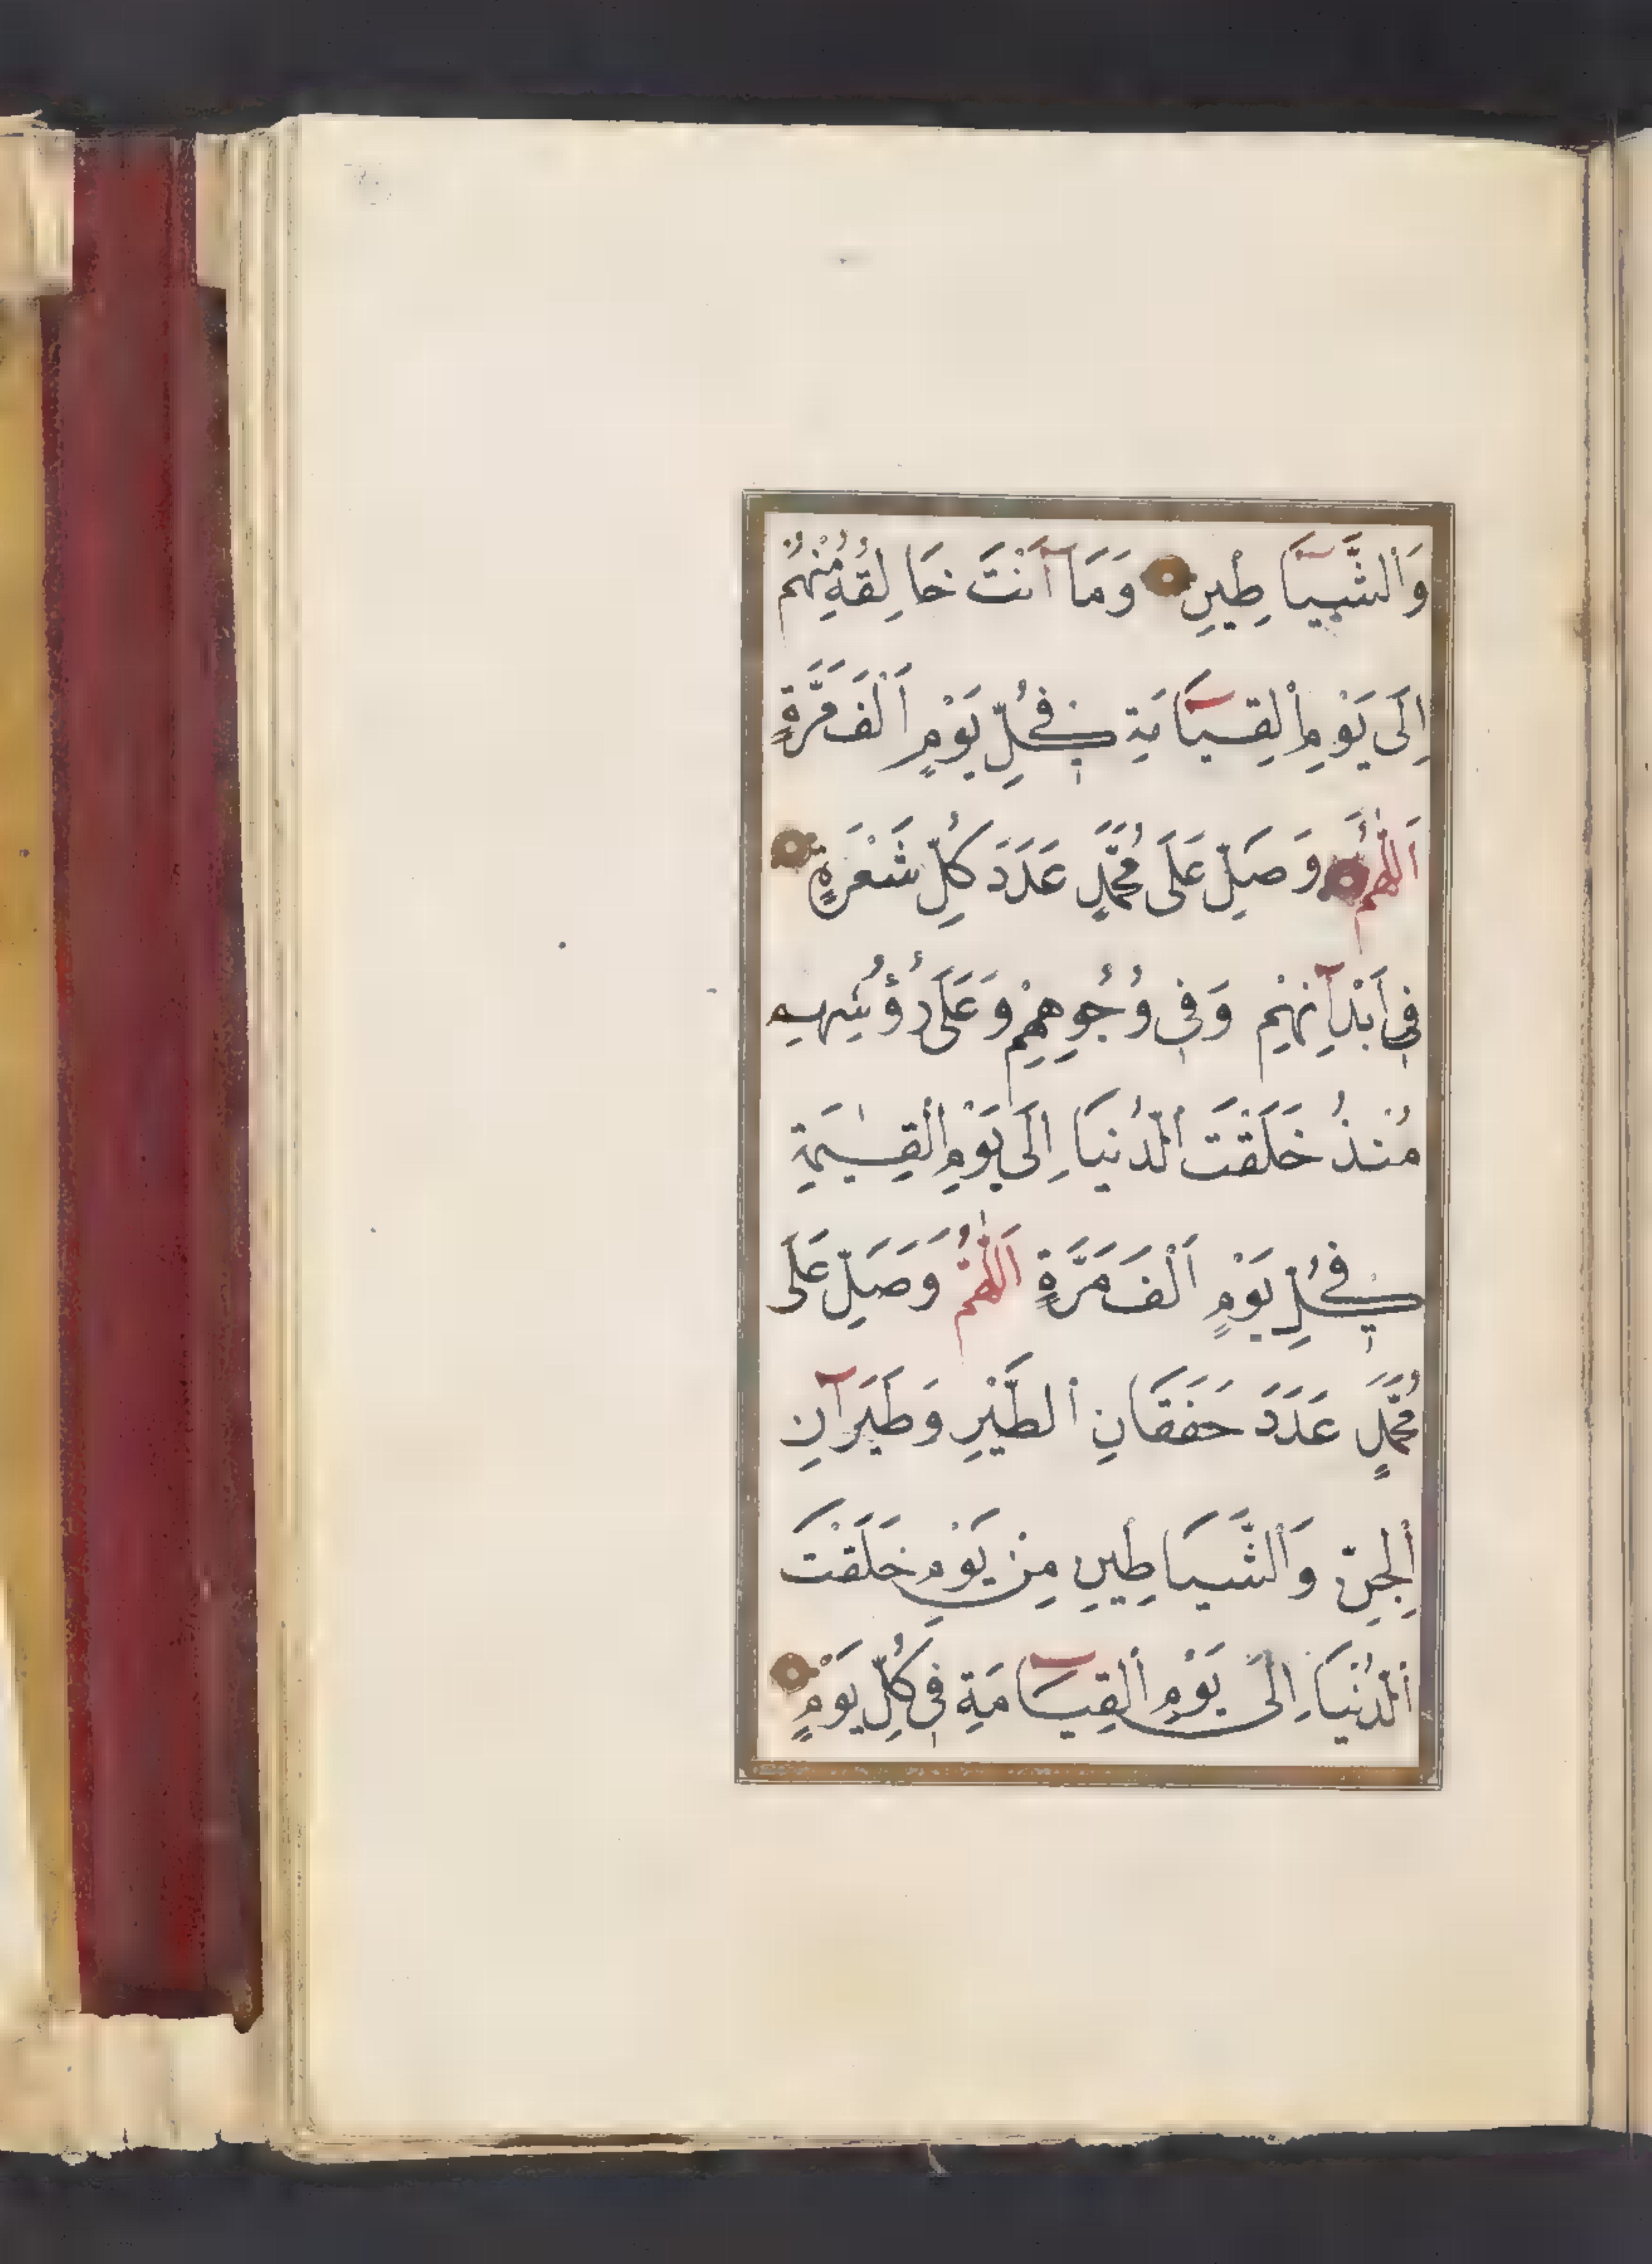 وَالشَّيَاطِينِ وَمَا اَنْتَ خَالِقُهُ مِنْهُمْ
اِلَى يَوْمِ الْقِيَامَةِ فِي كُلِّ يَوْمٍ اَلْفَ مَرَّةٍ
اَللّٰهُمَّ وَصَلِّ عَلَى مُحَمَّدٍ عَدَدَ كُلِّ شَعْرَةٍ
فِي اَبْدَآنِهِمْ وَفِي وُجُوهِهِمْ وَعَلَى رُؤُسِهِمْ
مُنْذُ خَلَقْتَ الدُّنْيَا اِلَى يَوْمِ الْقِيٰمَةِ
فِي كُلِّ يَوْمٍ اَلْفَ مَرَّةٍ اَللّٰهُمَّ وَصَلِّ عَلَى
مُحَمَّدٍ عَدَدَ خَفَقَانِ الطَّيْرِ وَطَيَرَآنِ
الْجِنِّ وَالشَّيَاطِينِ مِنْ يَوْمِ خَلَقْتَ
الدُّنْيَا اِلَى يَوْمِ الْقِيَامَةِ فِي كُلِّ يَوْمٍ